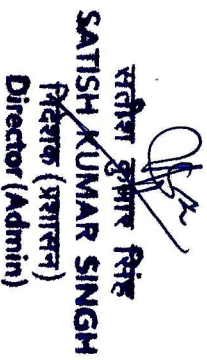 सतीश कुमार सिंह
SATISH KUMAR SINGH
निदेशक (प्रशासन)
Director (Admin)